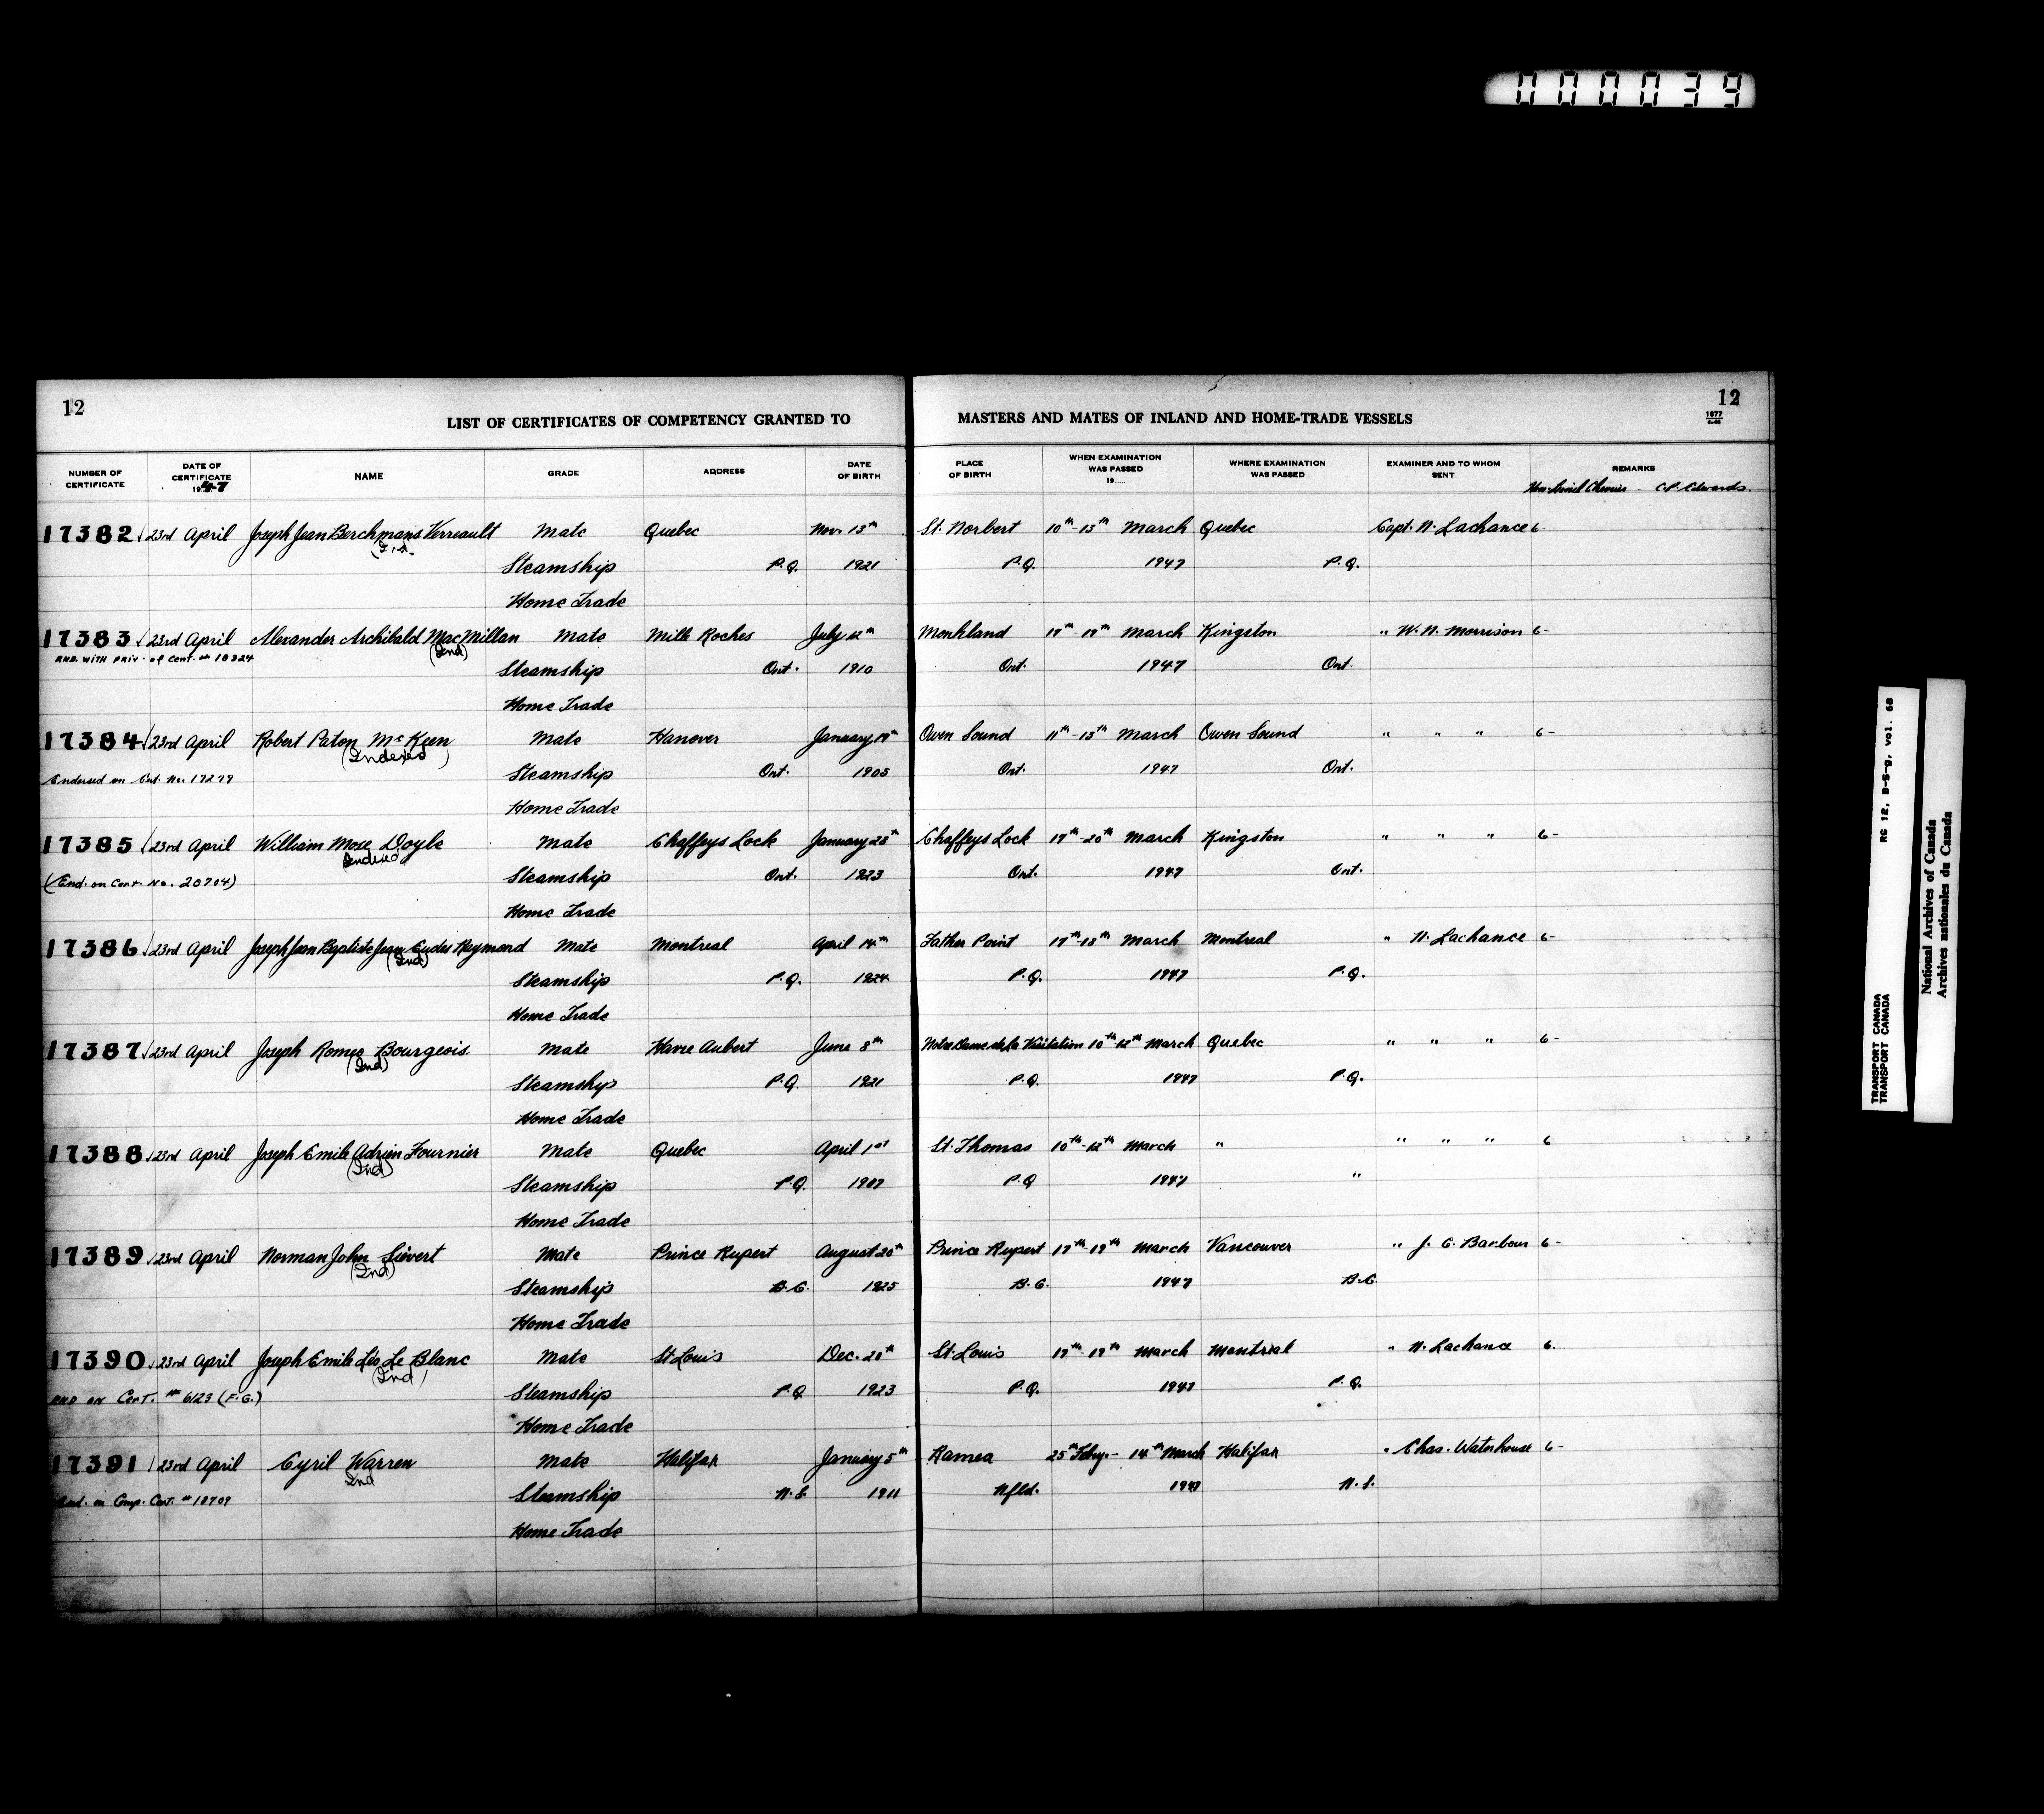 000039
12
LIST OF CERTIFICATES OF COMPETENCY GRANTED TO
MASTERS AND MATES OF INLAND AND HOME-TRADE VESSELS
12
1677
NUMBER OF CERTIFICATE
DATE OF CERTIFICATE 1947
NAME
GRADE
ADDRESS
DATE OF BIRTH
PLACE OF BIRTH
WHEN EXAMINATION WAS PASSED 19
WHERE EXAMINATION WAS PASSED
EXAMINER AND TO WHOM SENT
REMARKS
Hon. Lionel Chevrier - C.P. Edwards.
17382 √ 23rd April Joseph Jean Berchmans Verreault Mate Quebec Nov. 13th St. Norbert 10th-13th March Quebec Capt. N. Lachance 6-
Steamship P.Q. 1921 P.Q. 1947 P.Q.
Home Trade
17383 √ 23rd April Alexander Archibald MacMillan Mate Mille Roches July 12th Monkland 17th-19th March Kingston " W. N. Morrison 6-
END. WITH PRIV. of Cert. # 18324 (Ind)
Steamship Ont. 1910 Ont. 1947 Ont.
Home Trade
17384 √ 23rd April Robert Paton McKeen Mate Hanover January 19th Owen Sound 11th-13th March Owen Sound " " " 6-
(Indexed)
Endorsed on Cert. No. 17279 Steamship Ont. 1905 Ont. 1947 Ont.
Home Trade
17385 √ 23rd April William Mose Doyle Mate Chaffeys Lock January 28th Chaffeys Lock 17th-20th March Kingston " " " 6-
Indexed
(End. on Cert. No. 20704) Steamship Ont. 1923 Ont. 1947 Ont.
Home Trade
17386 √ 23rd April Joseph Jean Baptiste Jean Eudes Raymond Mate Montreal April 14th Father Point 17th-18th March Montreal " N. Lachance 6-
(Ind)
Steamship P.Q. 1924 P.Q. 1947 P.Q.
Home Trade
17387 √ 23rd April Joseph Romeo Bourgeois Mate Havre Aubert June 8th Notre Dame de la Visitation 10th-12th March Quebec " " " 6-
(Ind)
Steamship P.Q. 1921 P.Q. 1947 P.Q.
Home Trade
17388 √ 23rd April Joseph Emile Adrien Fournier Mate Quebec April 1st St. Thomas 10th-12th March " " " " 6
(Ind)
Steamship P.Q. 1907 P.Q 1947 "
Home Trade
17389 √ 23rd April Norman John Sievert Mate Prince Rupert August 20th Prince Rupert 17th-19th March Vancouver " J. C. Barbour 6-
(Ind)
Steamship B.C. 1925 B.C. 1947 B.C.
Home Trade
17390 √ 23rd April Joseph Emile Léo Le Blanc Mate St Louis Dec. 20th St. Louis 17th-19th March Montreal " N. Lachance 6.
(Ind)
END ON CERT. # 6123 (F.G.) Steamship P.Q 1923 P.Q. 1947 P.Q.
Home Trade
17391 √ 23rd April Cyril Warren Mate Halifax January 5th Ramea 25th Feby.- 14th March Halifax " Chas. Waterhouse 6-
Ind
End. on Comp. Cert. # 18709 Steamship N.S. 1911 Nfld. 1947 N.S.
Home Trade
TRANSPORT CANADA RG 12, B-5-g, vol. 68
TRANSPORT CANADA
National Archives of Canada
Archives nationales du Canada